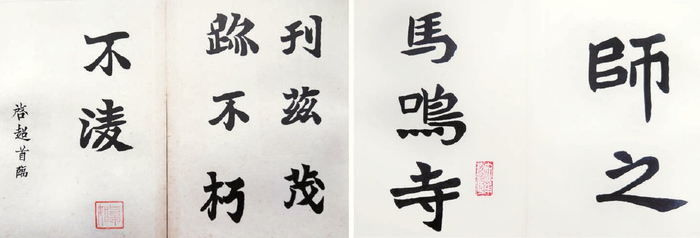 師之
馬鳴寺
刊茲茂
跡不朽
不淩
啓超首臨